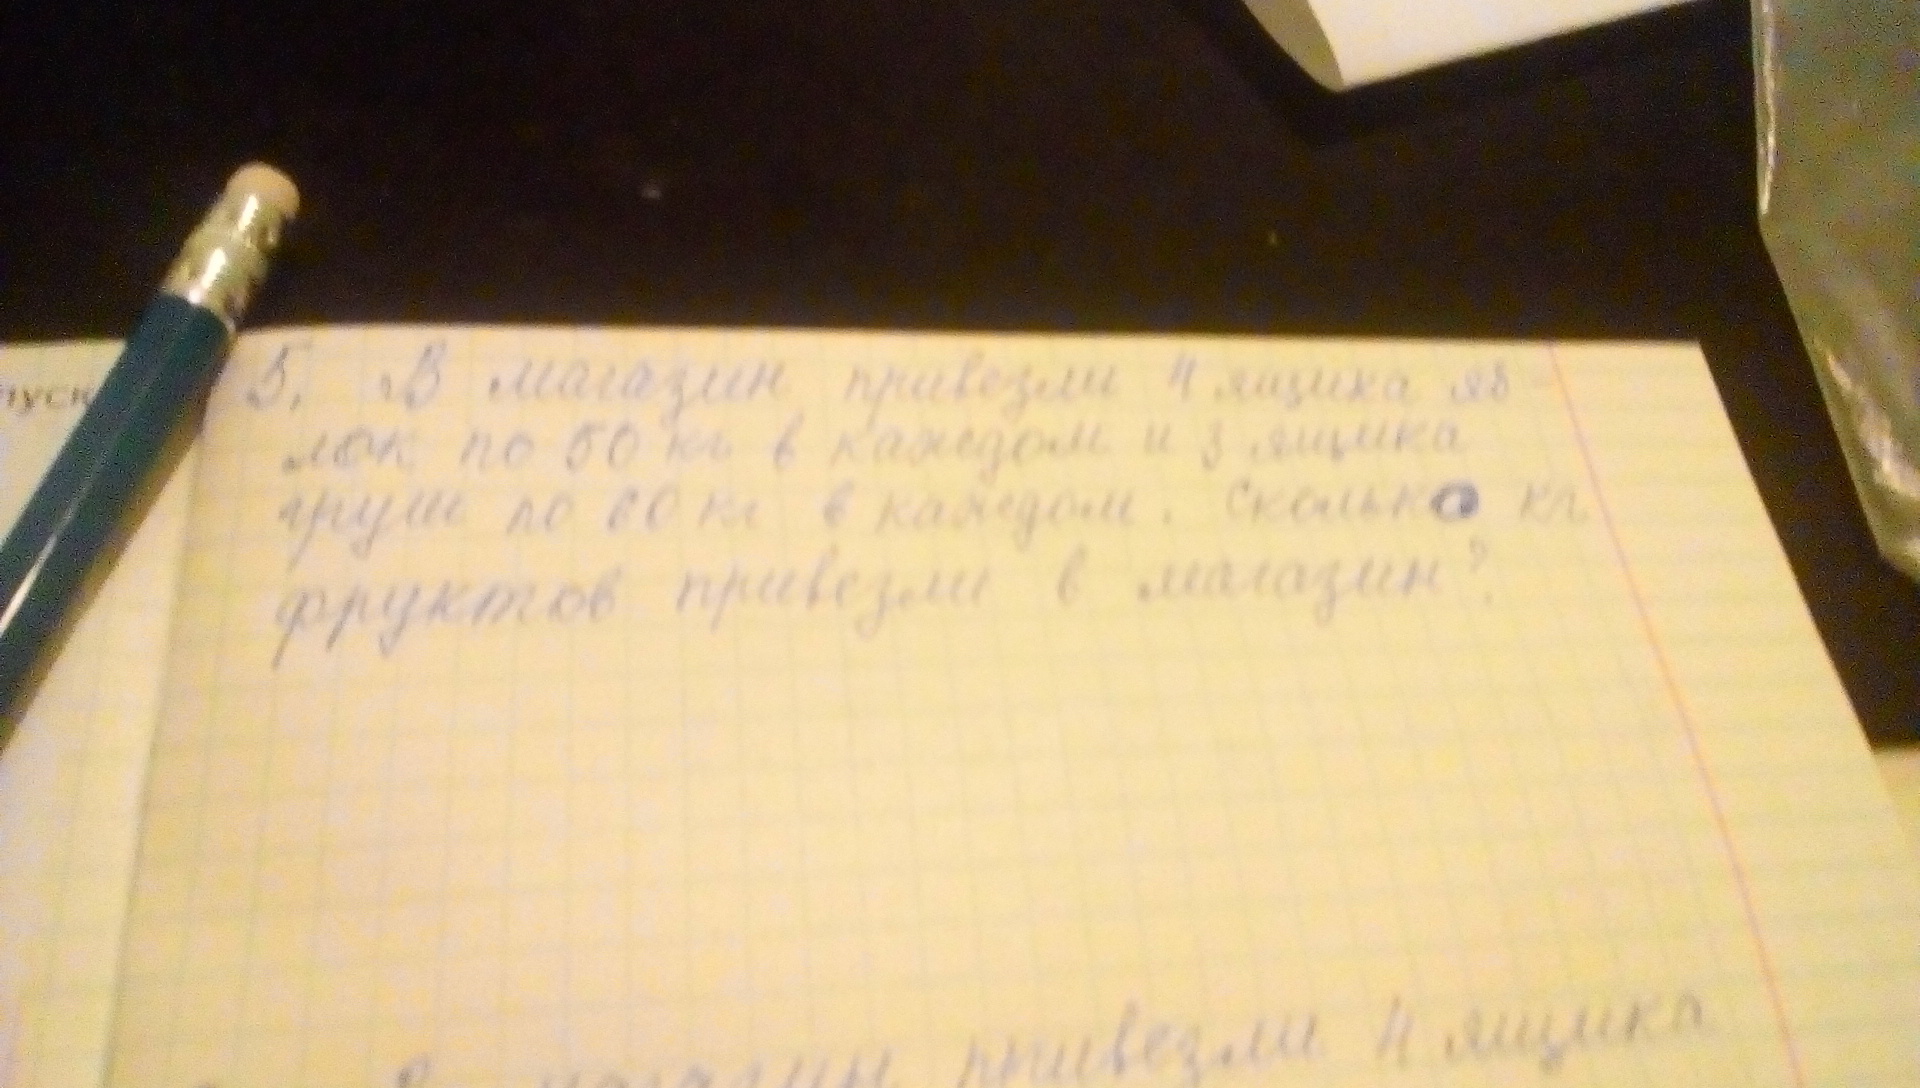 5. В магазин привезли 4 ящика яб
лок по 50 кг в каждом и 3 ящика
груш по 60 кг в каждом. Сколько кг
фруктов привезли в магазин?
В магазин привезли 4 ящика